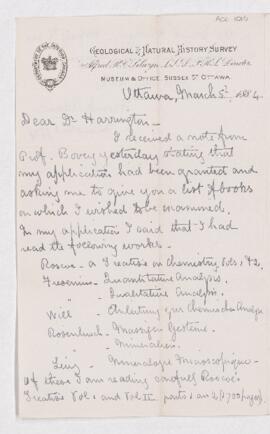 Acc 1010
Geological & Natural History Survey
Alfred R. C. Selwyn, L.L.D. F.R.S. Director
Museum & Office, Sussex St Ottawa
Ottawa, March 5th, 1884.
Dear Dr Harrington -
I received a note from
Prof. Bovey yesterday stating that
my application had been granted and
asking me to give you a list of books
on which I wished to be examined.
In my application I said that I had
read the following works -
Roscoe - a Treatise on Chemistry Vols. 1 & 2.
Fresenius - Quantitative Analysis.
Qualitative Analysis.
Will - Anleitung zur Chemischen Analyse
Rosenbusch - Massigen Gesteine.
Mineralien.
- Mineralogie Micrographique -
Of these I am reading carefully Roscoe's
Treatise Vol. 1 and Vol II parts 1 an 2 (1700 pages)